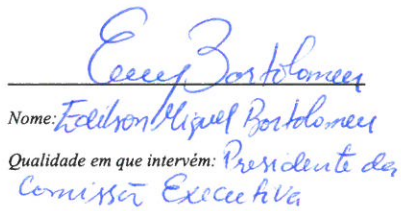 Bartolomeu
Nome: Edilson Miguel Bartolomeu
Qualidade em que intervém: Presidente da
Comissão Executiva